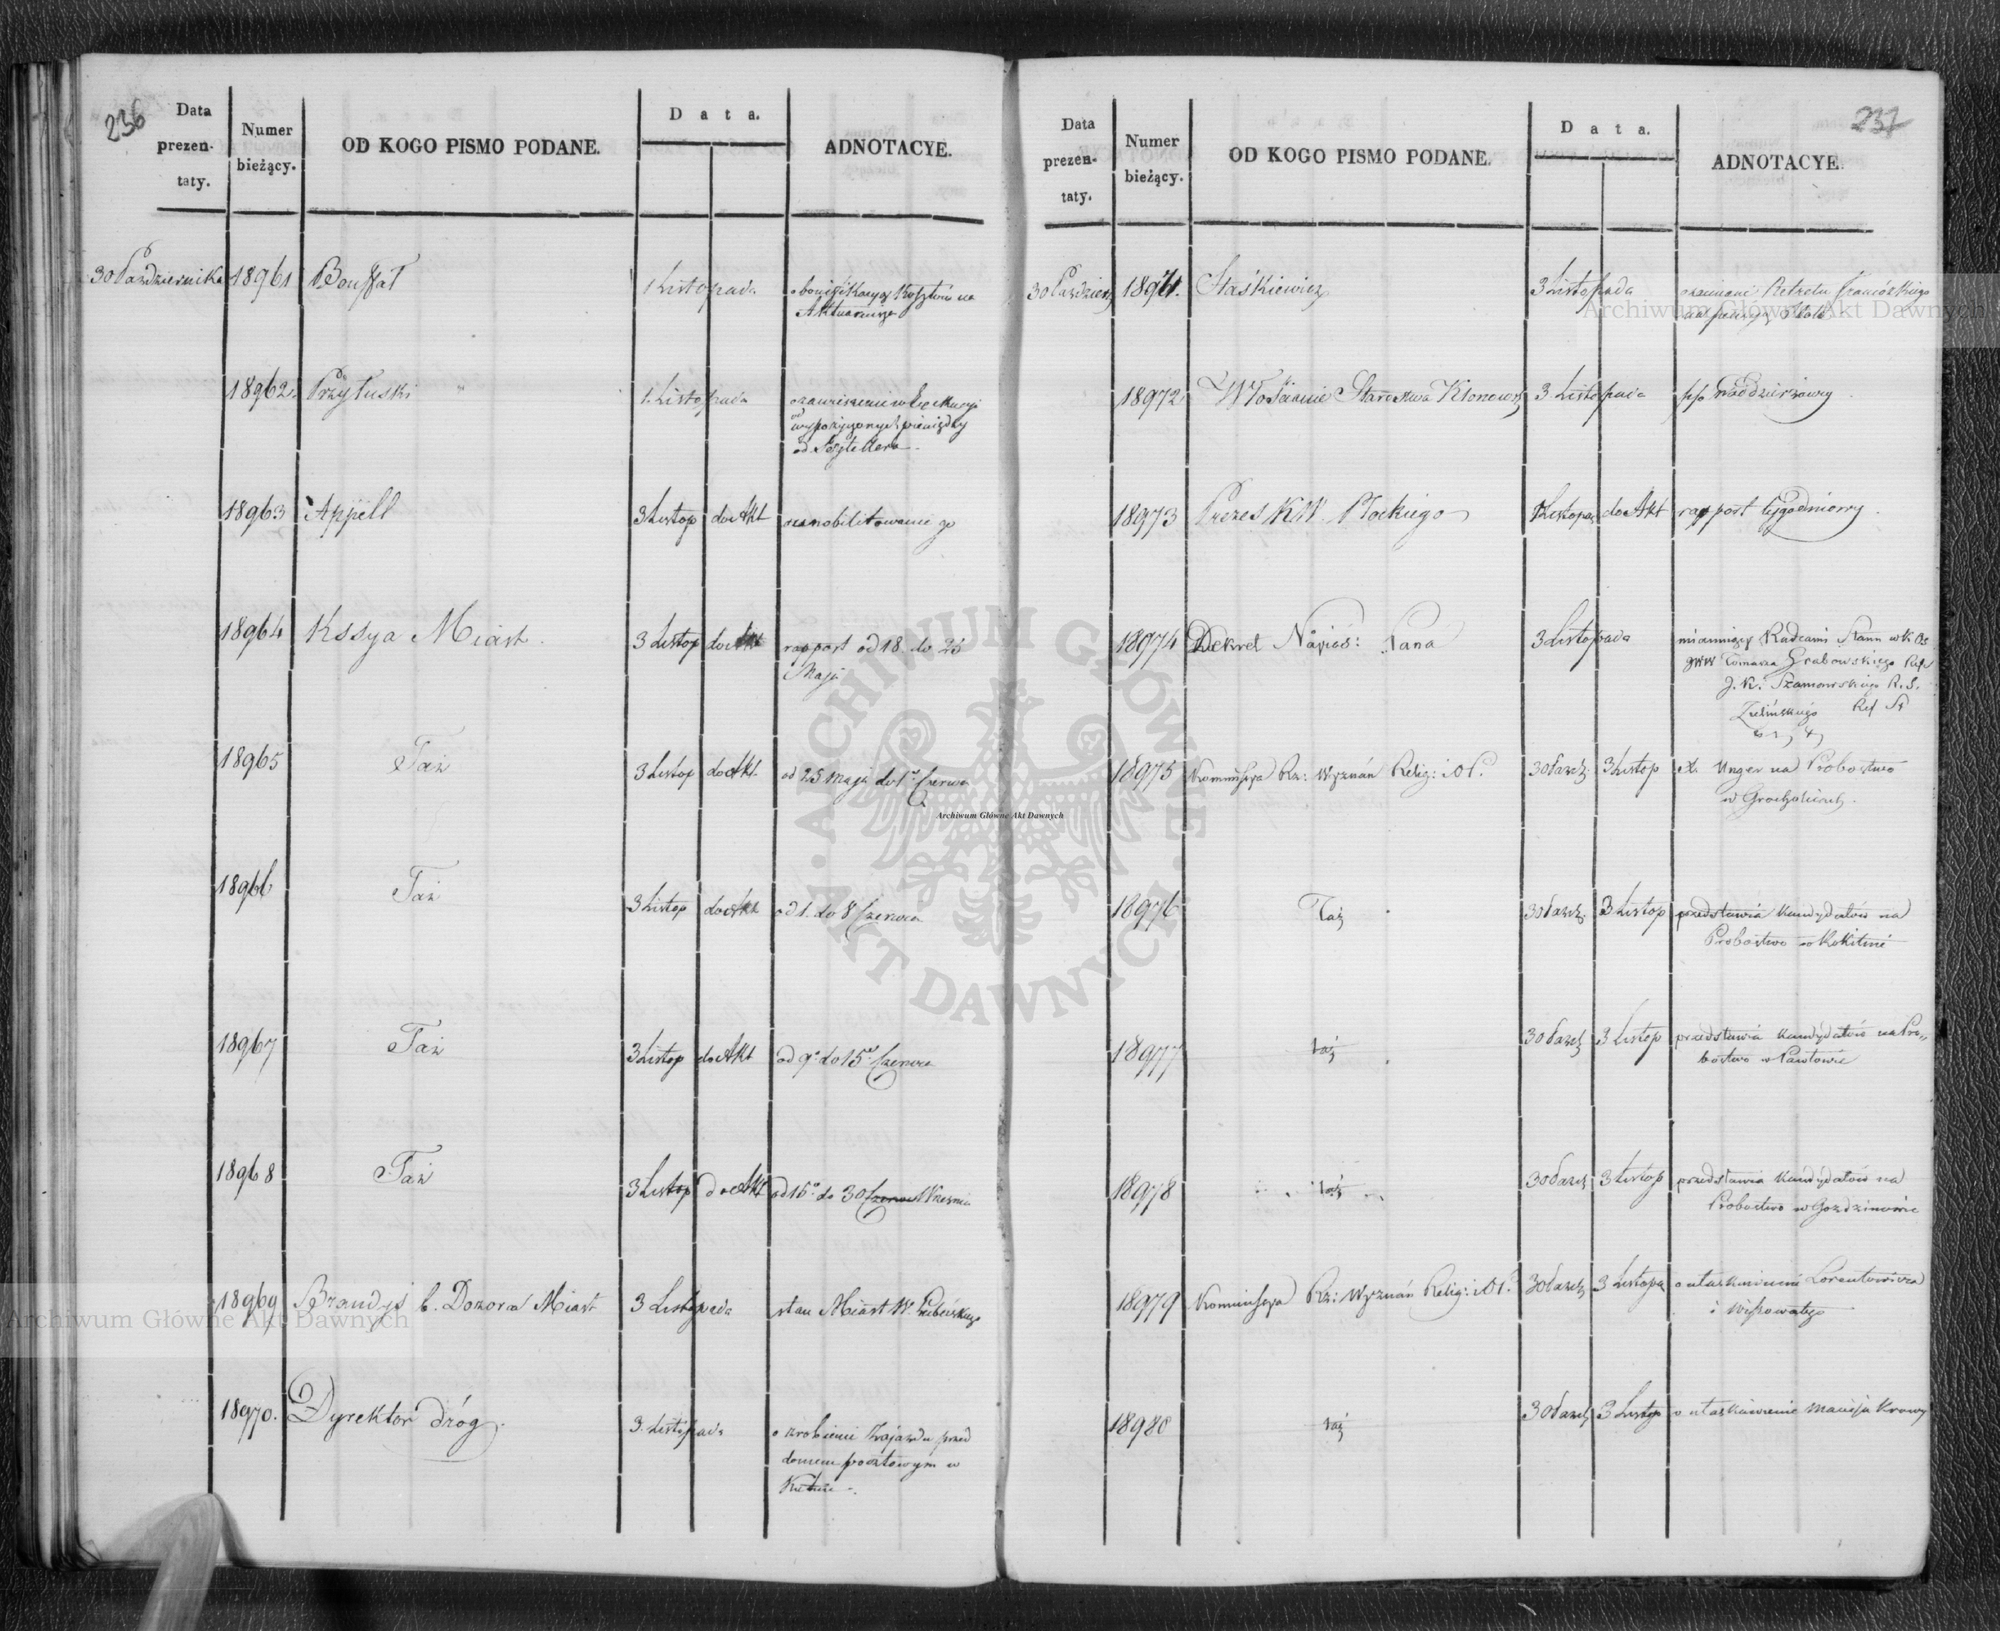 236
Data prezen- taty.
Numer bieżący.
OD KOGO PISMO PODANE.
Data.
ADNOTACYE.
30 Październik 18961 Bouffał 1 Listopada
Aktuariusza
18962 Przyłuski 1. Listopada
18963 Appell 3 Listop do Akt
18964 Kssya Miast. 3 Listop do Akt rapport od 18. do 25
Maja
18965 Taż 3 Listop do Akt. od 25 maja do 1º Czerwca
18966 Taż 3 Listop do Akt od 1. do 8 Czerwca
18967 Taż 3 Listop do Akt od 9º do 15º Czerwca
18968 Taż 3 Listop do Akt od 15º do 30 Czerwca Września
18969 Brandys b. Dozorca Miast 3 Listopada stan Miast W.
18970. Dyrektor dróg. 3. Listopada o zrobienie Zajazdu przed
domem pocztowym w
Kutnie.
237
Data prezen- taty.
Numer bieżący.
OD KOGO PISMO PODANE.
Data.
ADNOTACYE.
30 Paździer 18971. Staśkiewicz 3 Listopada
18972 Włościanie Starostwa 3 Listopada
18973 Prezes KW. Płockiego Listopa do Akt rapport tygodniowy.
18974 Dekret Nayiaś: Pana 3 Listopada mianuiący Radcami Stanu
JWW Tomasza Grabowskiego
Zielińskiego Ref St
18975 Kommissya Rz: Wyznań Relig: i O P. 30 Paźdz. 3 Listop X. Unger na Probostwo
18976 Taż 30 Paźdz. 3 Listop przedstawia kandydatów na
Probostwo w
18977 taż 30 Paźdz 3 Listop przedstawia kandydatów na Pro-
bostwo w Pawłowie
18978 taż 30 Paźdz 3 Listop przedstawia kandydatów na
Probostwo w
18979 Kommissya Rz: Wyznań Relig: i O P. 30 Paźdz 3 Listopa o ułaskawienie Lorentowicza
i
18980 taż 30 Paźdz 3 Listop o ułaskawienie Macieja Krowy
Archiwum Główne Akt Dawnych
ARCHIWUM GŁÓWNE
AKT DAWNYCH
Archiwum Główne Akt Dawnych
Archiwum Główne Akt Dawnych